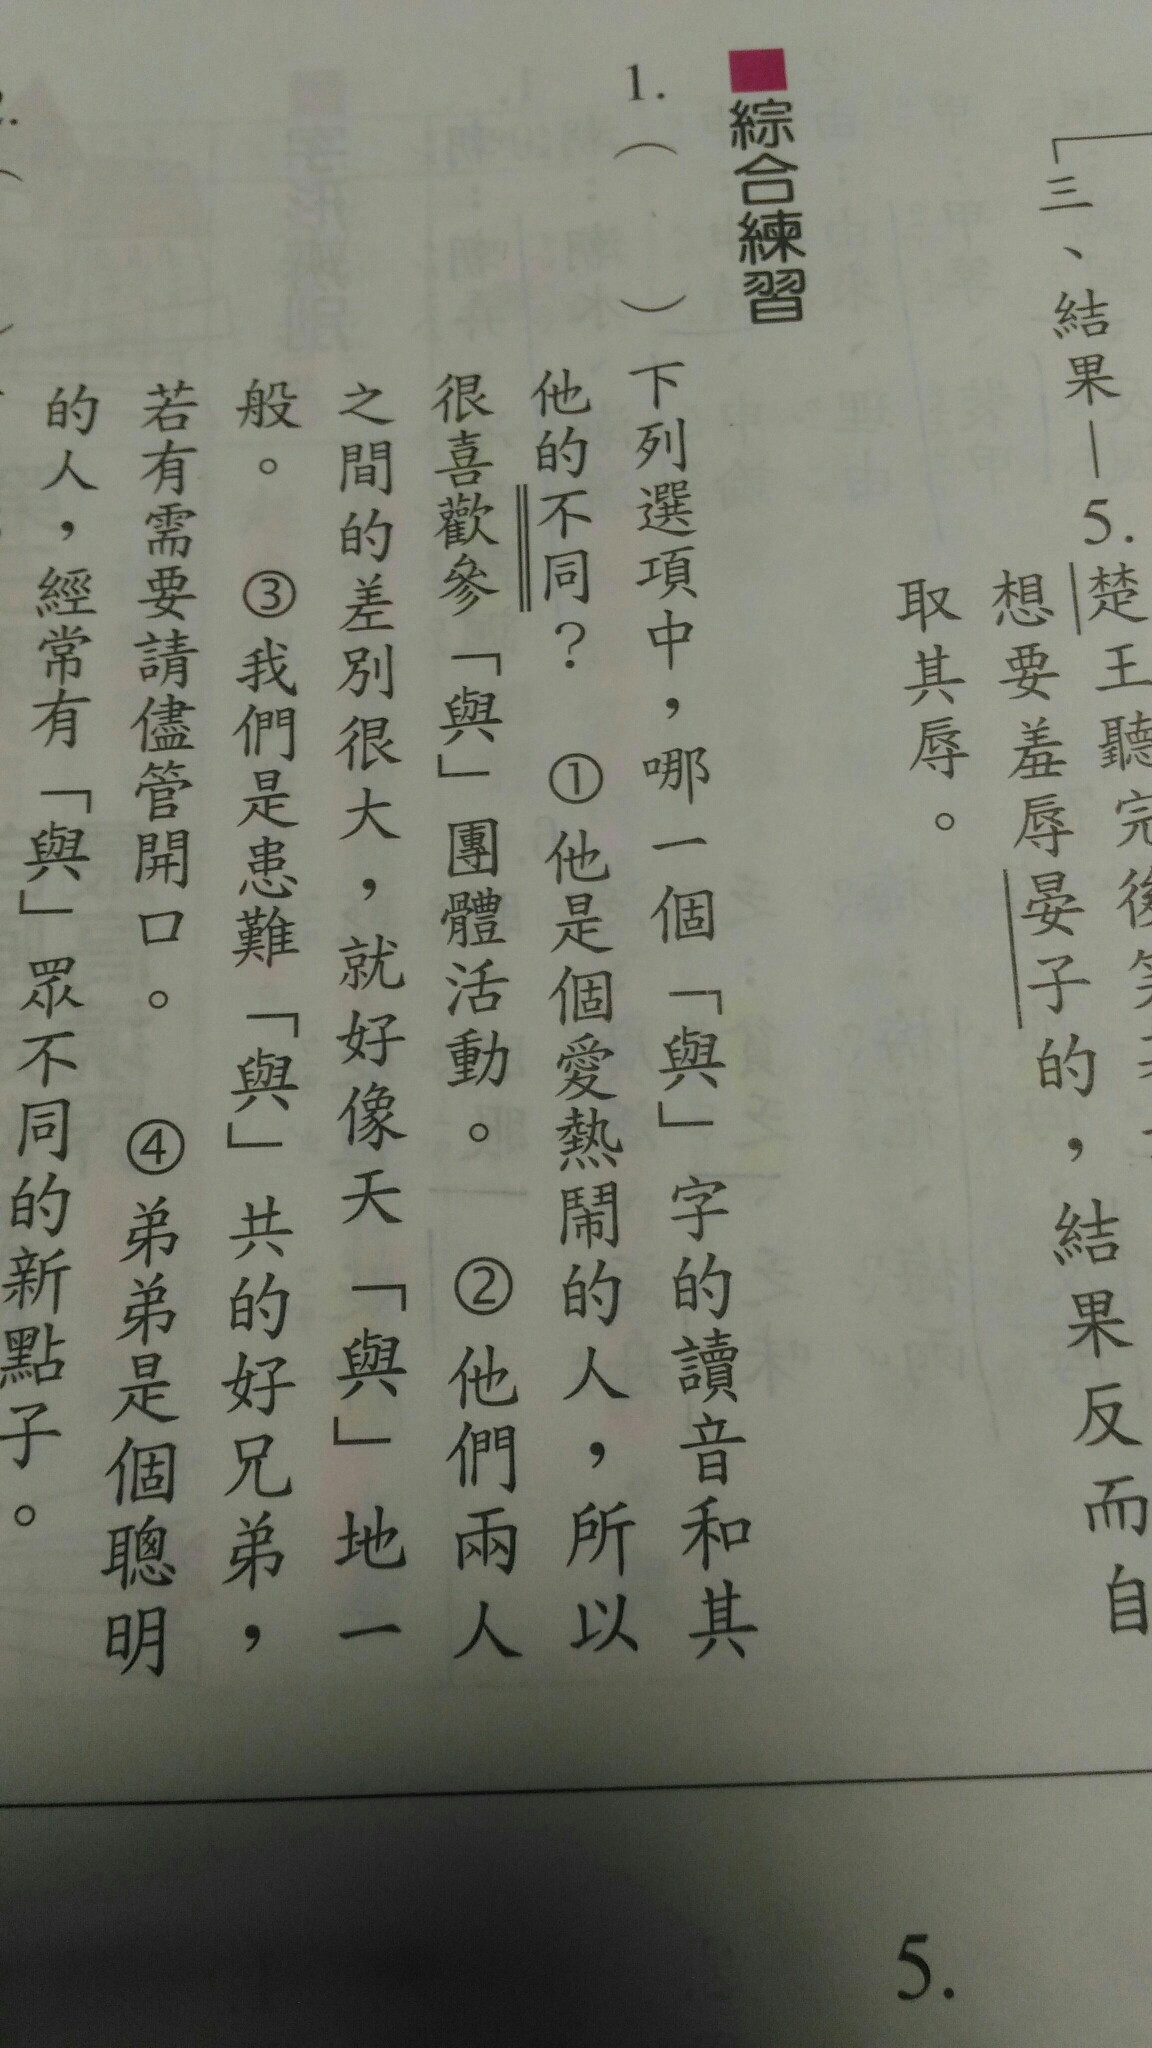 三、結果—5.楚王聽完後笑
想要羞辱晏子的，結果反而自
取其辱。
綜合練習
1.（　）下列選項中，哪一個「與」字的讀音和其
他的不同？　①他是個愛熱鬧的人，所以
很喜歡參「與」團體活動。　②他們兩人
之間的差別很大，就好像天「與」地一
般。　③我們是患難「與」共的好兄弟，
若有需要請儘管開口。　④弟弟是個聰明
的人，經常有「與」眾不同的新點子。
2.（　）
5.